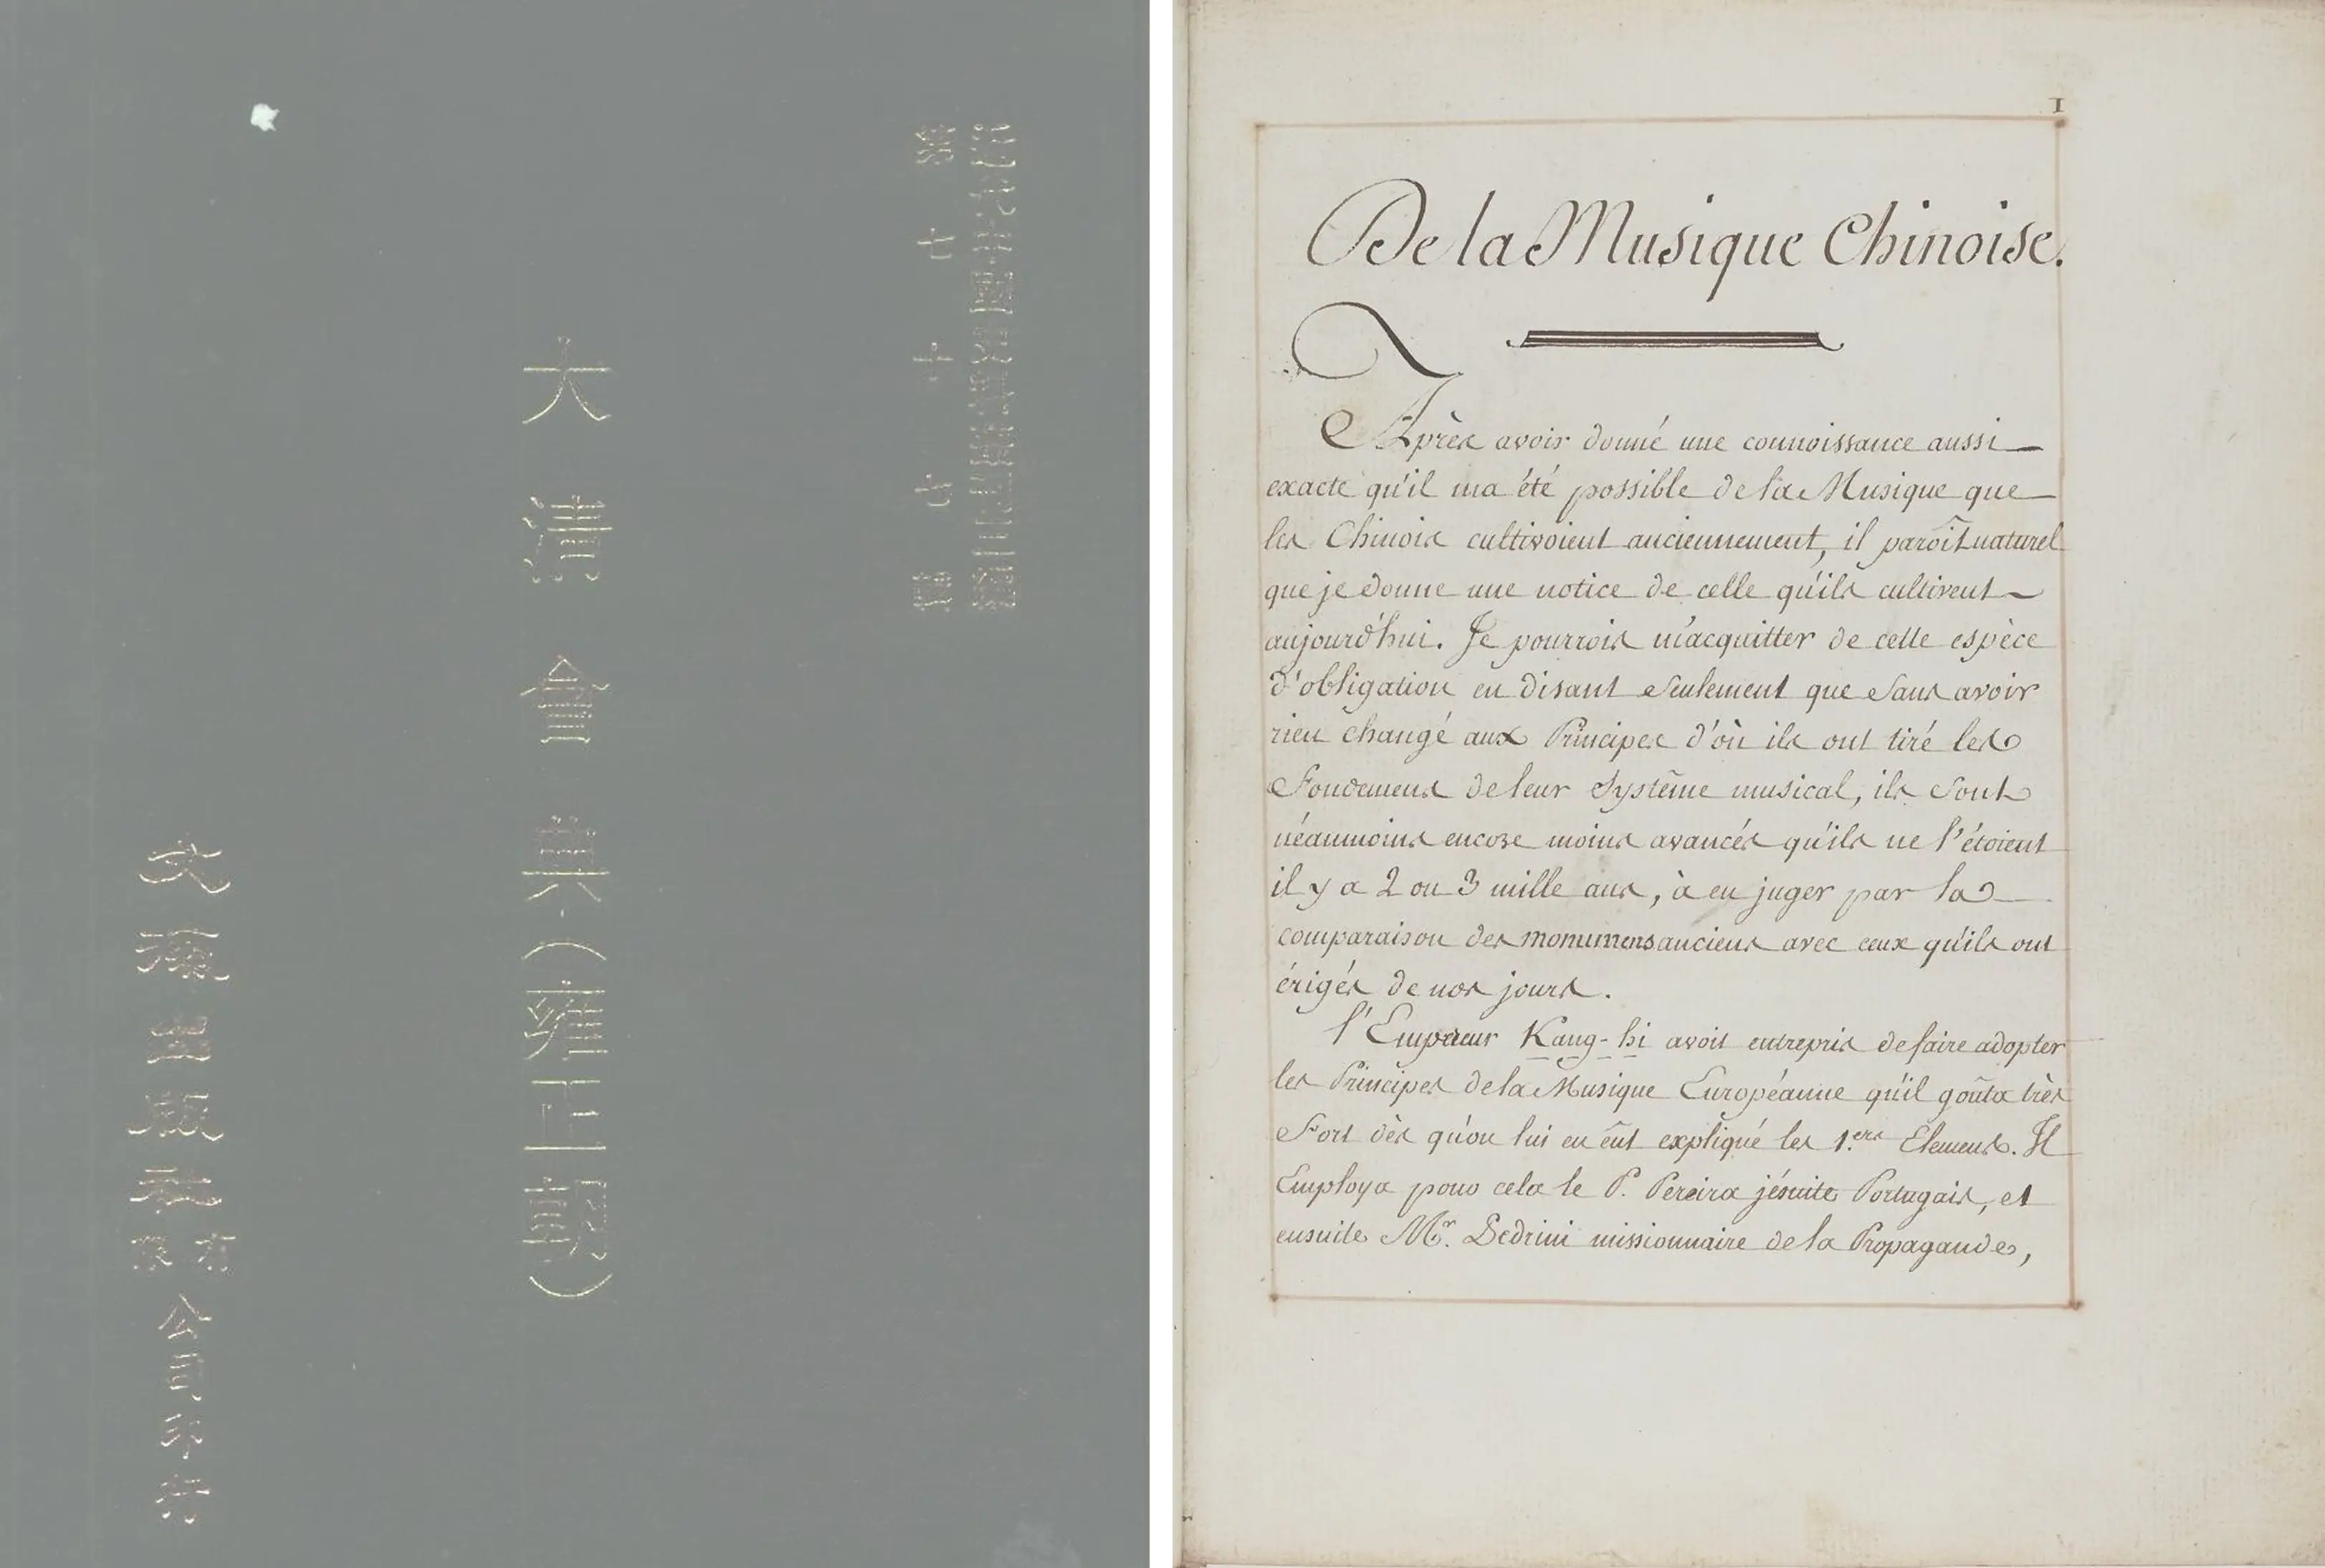 近代中國史料叢刊三編
第七十七輯
大清會典（雍正朝）
文海出版社有限公司印行
1
De la Musique Chinoise.
Après avoir donné une connoissance aussi
exacte qu'il m'a été possible de la Musique que
les Chinois cultivoient anciennement, il paroît naturel
que je donne une notice de celle qu'ils cultivent
aujourd'hui. Je pourrois m'acquitter de cette espèce
d'obligation en disant seulement que sans avoir
rien changé aux Principes d'où ils ont tiré les
Fondemens de leur Systême musical, ils sont
néanmoins encore moins avancés qu'ils ne l'étoient
il y a 2 ou 3 mille ans, à en juger par la
comparaison des monumens anciens avec ceux qu'ils ont
érigés de nos jours.
l'Empereur Kang-hi avoit entrepris de faire adopter
les Principes de la Musique Européanne qu'il goûta très
Fort dès qu'on lui en eût expliqué les 1.ers Elemens. Il
Employa pour cela le P. Pereira jésuite Portugais, et
ensuite Mr. Pedrini missionnaire de la Propagande,